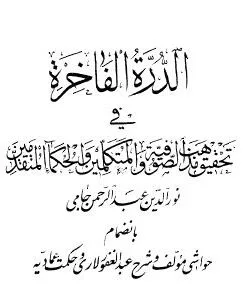 الدرة الفاخرة
في
تحقيق مذهب الصوفية والمتكلمين والحكماء المتقدمين
نورالدین عبدالرحمن جامی
بانضمام
حواشی مؤلف و شرح عبدالغفور لاری و حکمت عمادیه